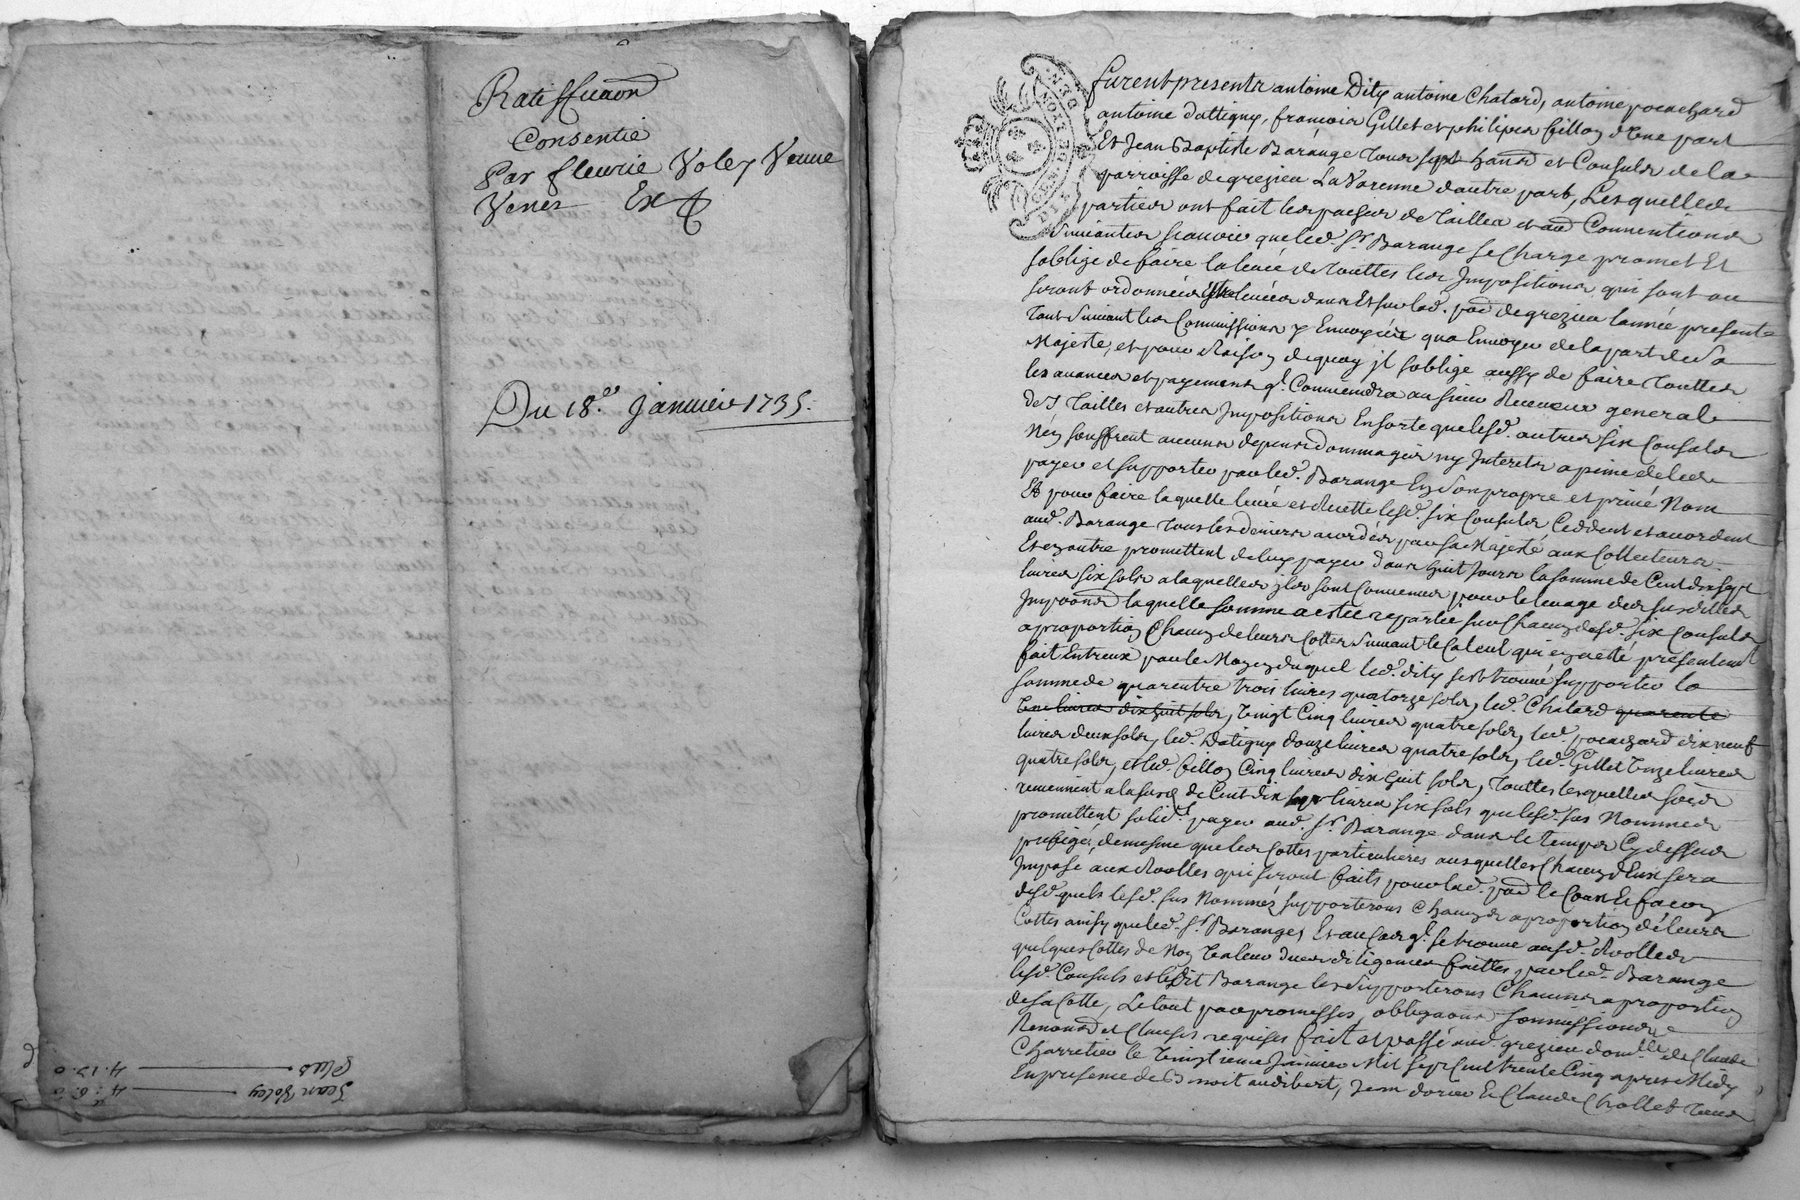 Ratiffication
Consentie
Par fleurie Voley Veuue
Venet Ex
Du 18.e Januier 1735.
Jean Voley 4. 6. 0
Plus 4. 17. 0
furent presents antoine Dity antoine Chatard, antoine pocachard
antoine dattigny, francois Gillet et philipes fillon d'Une part
Et Jean Baptiste Barange tous sept hants et Consuls de la
parroisse de grezieu La Varenne dautre part, Lesquelles
parties ont fait les pactes de Tailles et Conuentions
Suiuantes scauoir que led. Sr. Barange se Charge promet Et
soblige de faire la leuée de Touttes les Impositions qui sont ou
seront ordonnées estre leuées dans Et sur lad. pad de grezieu lannée presente
Tout Suiuant les Commissions y Enuoyées qua Enuoyer de la part de Sa
Majesté, et pour Raison de quoy jl soblige aussy de faire Touttes
les auances et payements ql. Conuiendra au sieur Receueur general
des Tailles et autres Impositions En sorte que lesd. autres six Consuls
Nen souffrent aucuns depens dommages ny Interets a peine de les
payer et supporter par led. Barange En son propre et priué Nom
Et pour faire laquelle leuée et Recette lesd. six Consuls Ceddent et acordent
aud. Barange Tous les deniers acordés par sa Majesté aux Collecteurs
Et en outre promettent de luy payer dans huit Jours la somme de Cent dix sept
liures six sols a laquelle jls sont Conuenus pour le leuage des susdittes
Impoons laquelle somme a estée repartie sur Chacun desd. six Consuls
a proportion Chacun de leurs Cottes Suiuant le Calcul qui en a esté presentement
fait Entreux par le Moyen duquel led. dity sest trouué supporter la
somme de quarentre trois liures quatorze sols, led. Chatard quarente
Une liures dix huit sols, Vingt Cinq liures quatre sols, led. pocachard dix neuf
liures deux sols, led. Datigny douze liures quatre sols, led. Gillet Unze liures
quatre sols, et led. fillon Cinq liures dix huit sols, Touttes lesquelles
reuiennent a la de Cent dix sept liures six sols que lesd. sus Nommés
promettent solid. payer aud. Sr. Barange dans le temps Cy dessus
prefigé, de mesme que les Cottes particulieres ausquelles Chacun d'Eux sera
Imposé aux Roolles qui seront faits pour lad. pad le Coust Et facon
desd. quels lesd. sus Nommés supporterons Chacun a proportion de leurs
Cottes ainsy que led. Sr. Barange, Et au Cas ql. se trouue ausd. Roolles
quelques Cottes de Non Valeur dues diligences faittes par led. Barange
lesd. Consuls et ledit Barange les Supporterons Chacuns a proportion
de sa Cotte, Le tout par promesses, obligaons soumissions
Renons et Clauses requises fait et passé aud. grezieu domlle. de Claude
Charretier le Vingtieme Januier Mil sept Cent trente Cinq apres Midy
En presence de Benoit audibert, Jean dorier Et Claude Chollet Tous